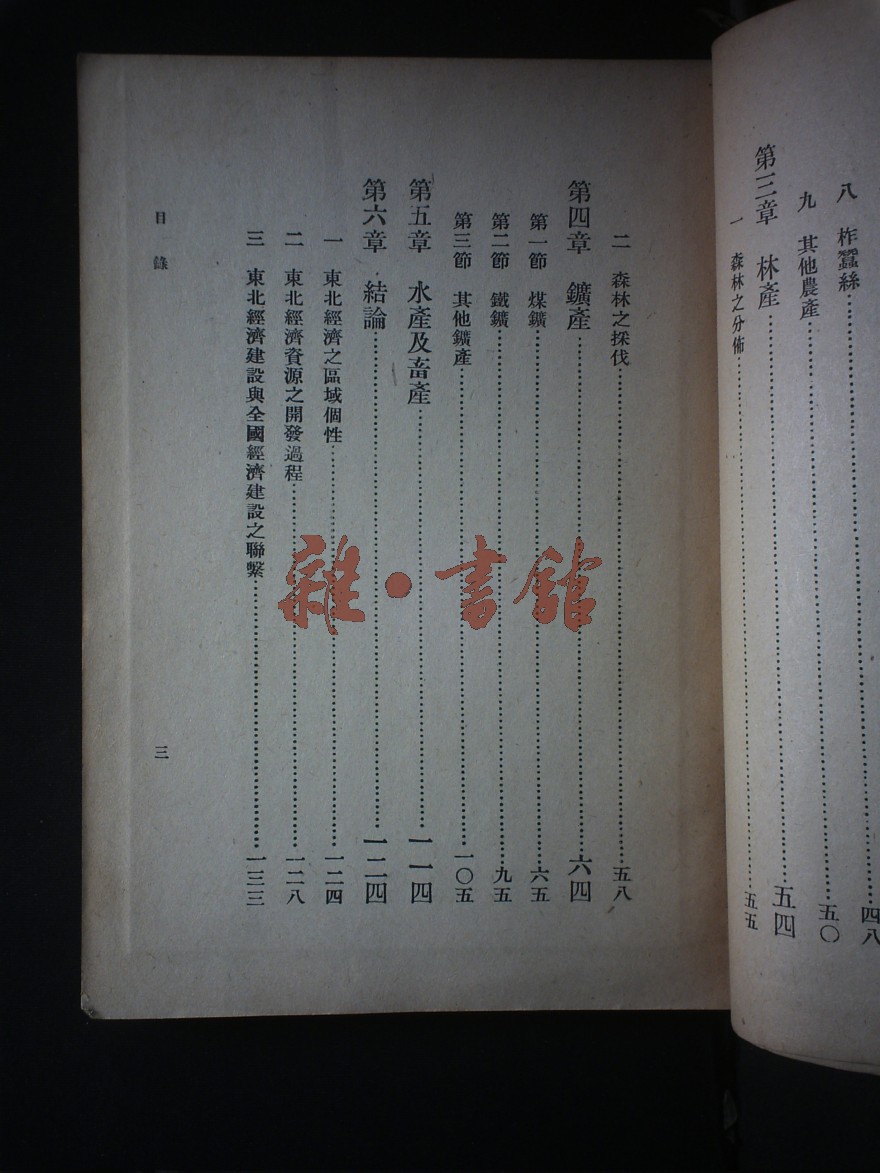 八 柞蠶絲……四八
九 其他農產……五〇
第三章 林產……五四
一 森林之分佈……五五
二 森林之採伐……五八
第四章 鑛產……六四
第一節 煤鑛……六五
第二節 鐵鑛……九五
第三節 其他鑛產……一〇五
第五章 水產及畜產……一一四
第六章 結論……一二四
一 東北經濟之區域個性……一二四
二 東北經濟資源之開發過程……一二八
三 東北經濟建設與全國經濟建設之聯繫……一三三
目錄
三
雜·書館